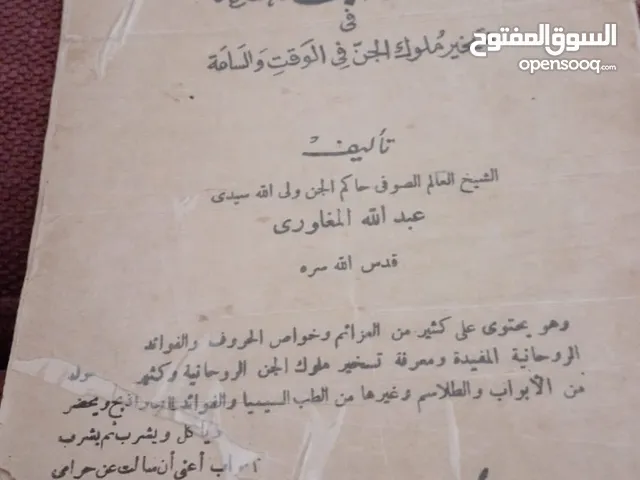 السوق المفتوح
opensooq.com
فى
تسخير ملوك الجن فى الوقت والساعة
تأليف
الشيخ العالم الصوفى حاكم الجن ولى الله سيدى
عبد الله المغاورى
قدس الله سره
وهو يحتوى على كثير من العزائم وخواص الحروف والفوائد
الروحانية المفيدة ومعرفة تسخير ملوك الجن الروحانية وكثير
من الأبواب والطلاسم وغيرها من الطب السيميا والفوائد ويحضر
ويأكل ويشرب ثم يشرب
أعنى أن سالت عن حرامى